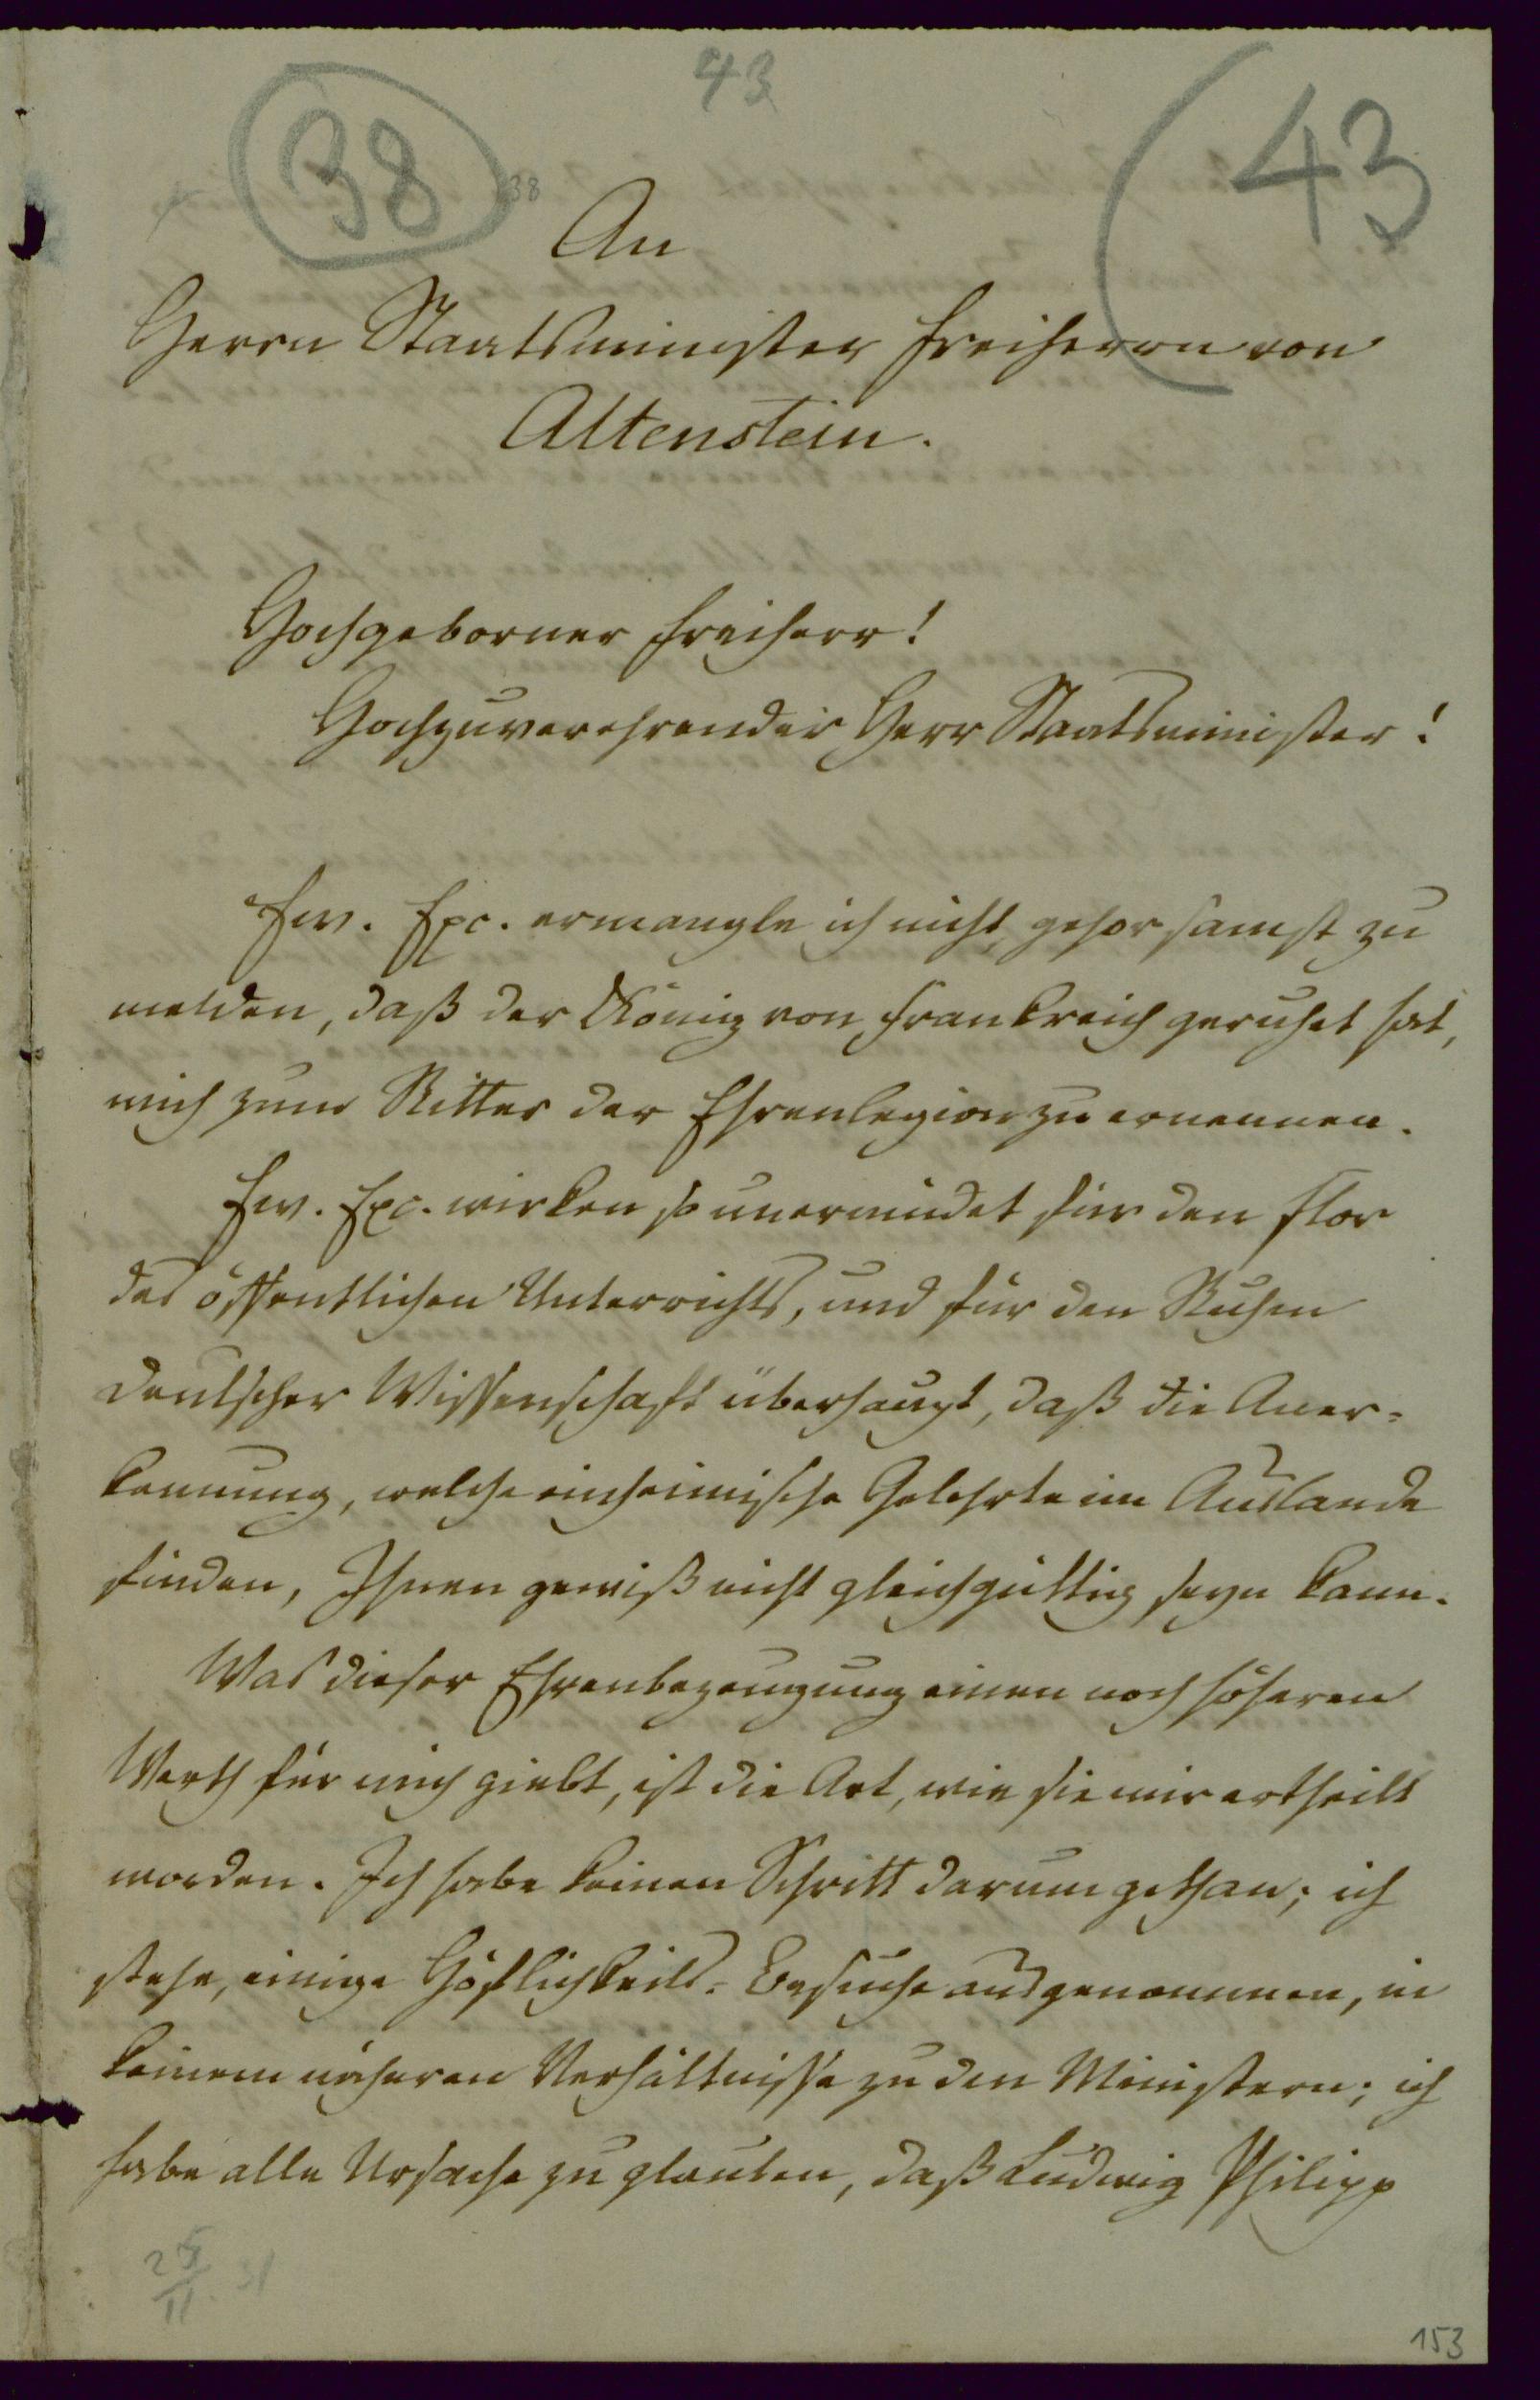 43
38
38
43
An
Herrn Staatsminister Freiherrn von
Altenstein.
Hochgeborner Freiherr!
Hochzuverehrender Herr Staatsminister!
Ew. Exc. ermangle ich nicht, gehorsamst zu
melden, daß der König von Frankreich geruhet hat,
mich zum Ritter der Ehrenlegion zu ernennen.
Ew. Exc. wirken so unermüdet für den Flor
des öffentlichen Unterrichts, und für den Ruhm
deutscher Wissenschaft überhaupt, daß die Aner-
kennung, welche einheimische Gelehrte im Auslande
finden, Ihnen gewiß nicht gleichgültig seyn kann.
Was dieser Ehrenbezeugung einen noch höheren
Werth für mich giebt, ist die Art, wie sie mir ertheilt
worden. Ich habe keinen Schritt darum gethan; ich
stehe, einige Höflichkeits-Besuche ausgenommen, in
keinem näheren Verhältnisse zu den Ministern; ich
habe alle Ursache zu glauben, daß Ludwig Philipp
25/11. 31
153